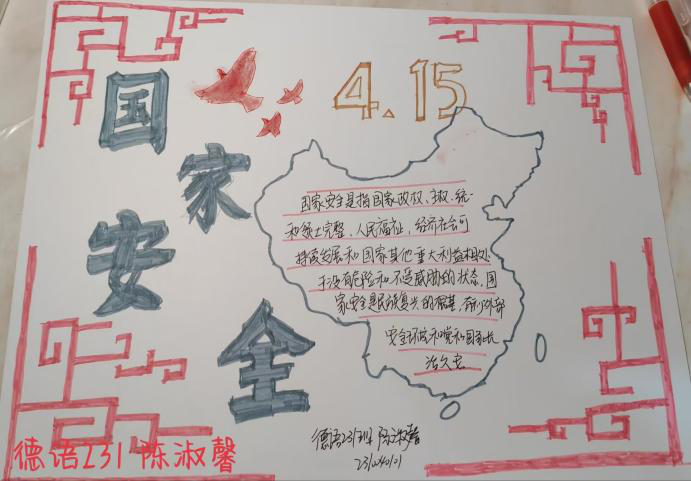 国家安全
4.15
国家安全是指国家政权、主权、统一
和领土完整、人民福祉、经济社会可
持续发展和国家其他重大利益相对处
于没有危险和不受威胁的状态,国
家安全是民族复兴的根基,
安全环境和党和国家长
治久安
德语231班 陈淑馨
德语231 陈淑馨